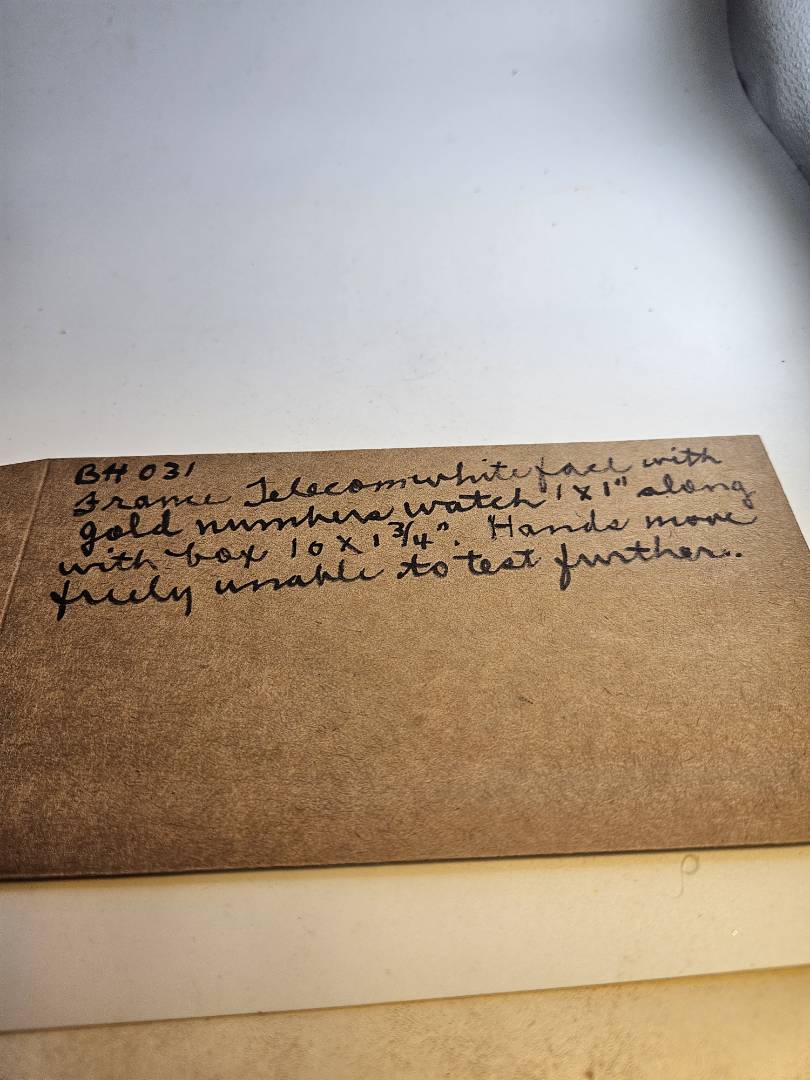 BH 031
France Telecom white face with
gold numbers watch 1 x 1" along
with box 10 x 1 3/4". Hands move
freely unable to test further.